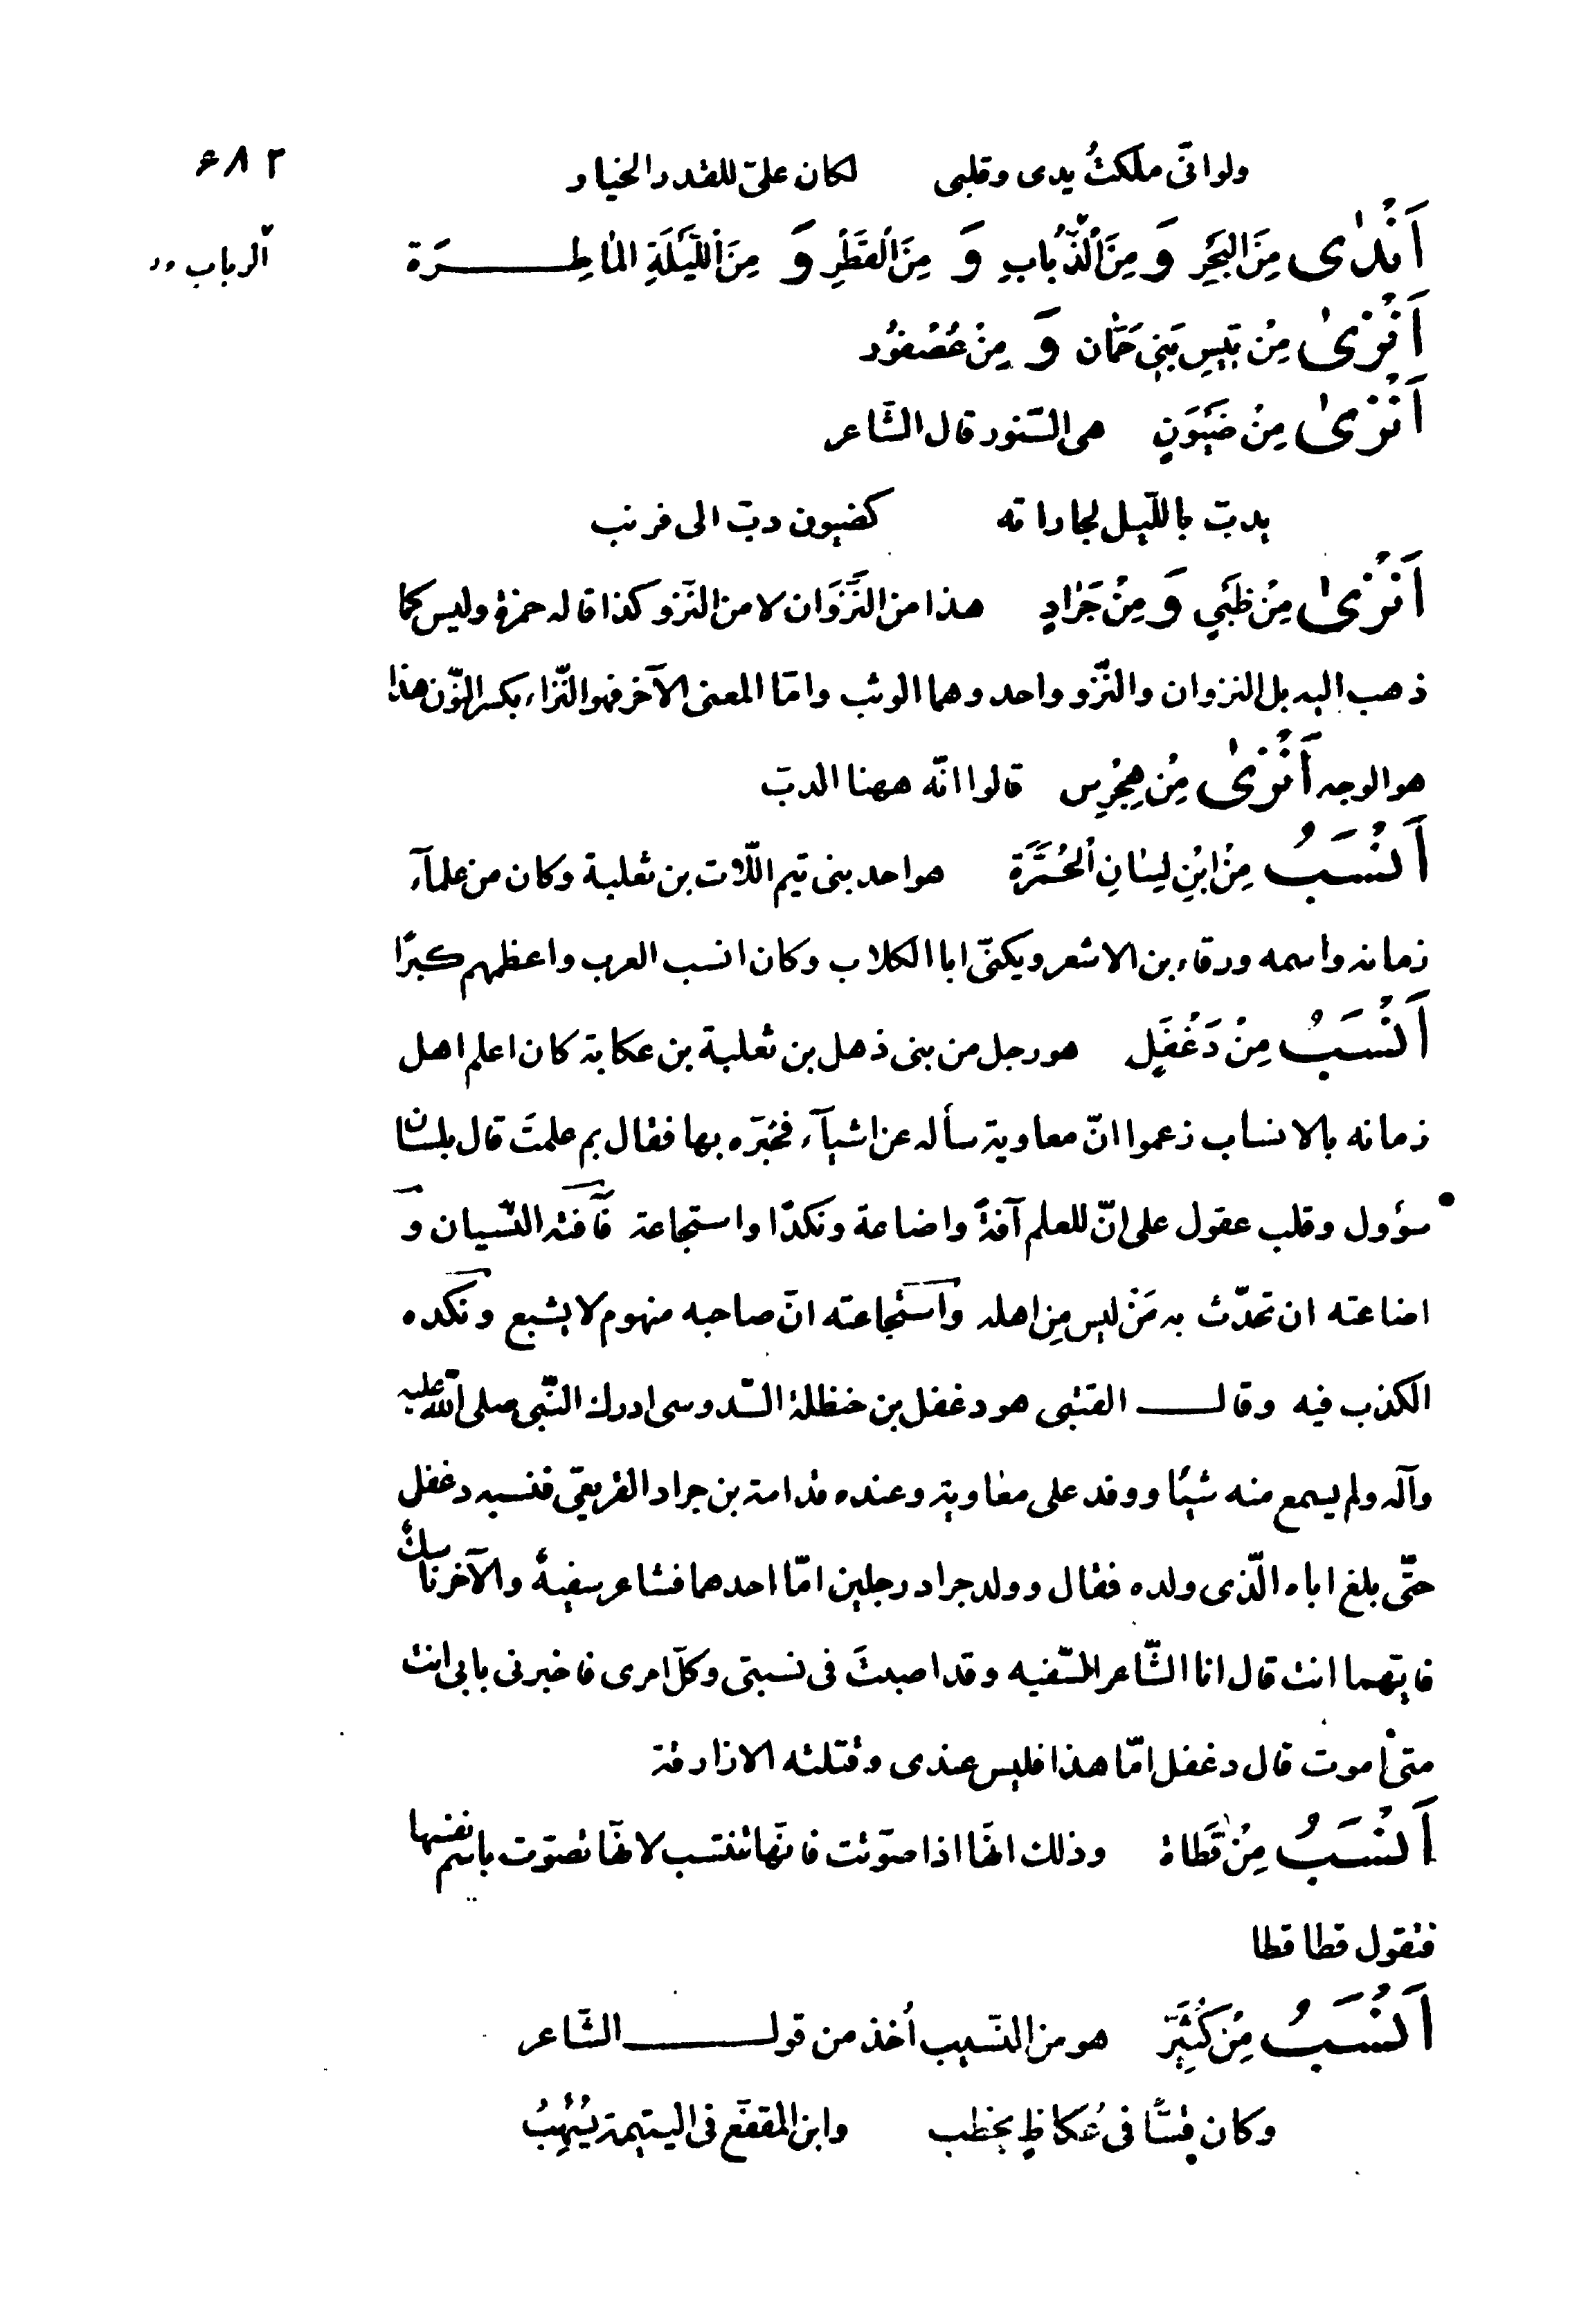 ۶۸۲
ولو انّى ملكتُ يدى وقلبى    لكان علىّ للقدر الخيار
اَنْدٰى مِنَ البَحْرِ وَ مِنَ الذُّبابِ وَ مِنَ القَطْرِ وَ مِنَ اللَّيْلَةِ المٰاطِـرَة
الرباب
اَنْزىٰ مِنْ تَيْسِ بَنِى حَمّان وَ مِنْ عُصْفُور
اَنْزىٰ مِنْ ضَيْوَنٍ هى السّنور قال الشّاعر
يدبّ باللّيل لجاراته    كضيون دبّ الى فرنب
اَنْزىٰ مِنْ ظَبْىٍ وَ مِنْ جَرٰادٍ هذا من النَّزَوَان لا من النّزو كذا قاله حمزة وليس كما
ذهب اليه بل النزوان والنّزو واحد وهما الوثب وامّا المعنى الآخر فهو النّزاء بكسر النّون هذا
هو الوجه اَنْزىٰ مِنْ هِجْرِس قالوا انّه ههنا الدبّ
اَنْسَبُ مِنْ ابْنِ لِسٰانِ الحُمَّرَة هو احد بنى تيم اللّات بن ثعلبة وكان من علمآء
زمانه واسمه ورقاء بن الاشعر ويكنّى ابا الكلاب وكان انسب العرب واعظمهم كبرًا
اَنْسَبُ مِنْ دَغْفَلٍ هو رجل من بنى ذهل بن ثعلبة بن عكابة كان اعلم اهل
زمانه بالانساب زعموا انّ معاوية سأله عن اشيآء فخبّره بها فقال بم علمتَ قال بلسان
سؤول وقلب عقول على انّ للعلم آفةً واضاعة ونكدًا واستجاعة فآفته النّسيان و
اضاعته ان تحدّث به مَنْ ليس مِن اهله واستجاعته انّ صاحبه منهوم لا يشبع ونكده
الكذب فيه وقال القتبى هو دغفل بن حنظلة السّدوسى ادرك النّبى صلى الله عليه
وآله ولم يسمع منه شيئًا ووفد على معاوية وعنده قدامة بن جراد القريعىّ فنسبه دغفل
حتّى بلغ اباه الّذى ولده فقال وولد جراد رجلين امّا احدهما فشاعر سفيهٌ والآخر ناسكٌ
فايّهما انت قال انا الشّاعر السّفيه وقد اصبتَ فى نسبتى وكلّ امرى فاخبرنى بابى انت
متى اموت قال دغفل امّا هذا فليس عندى وقتلته الازارقة
اَنْسَبُ مِنْ قَطَاة وذلك انّها اذا صوّتت فانّها تنتسب لانّها تصوّت باسم نفسها
فتقول قطا قطا
اَنْسَبُ مِنْ كُثَيِّرَ هو من النّسيب اُخذ من قول الشّاعر
وكان قسًّا فى عُكاظٍ يخطب    وابن المقفّع فى اليتيمة يُسْهِبُ